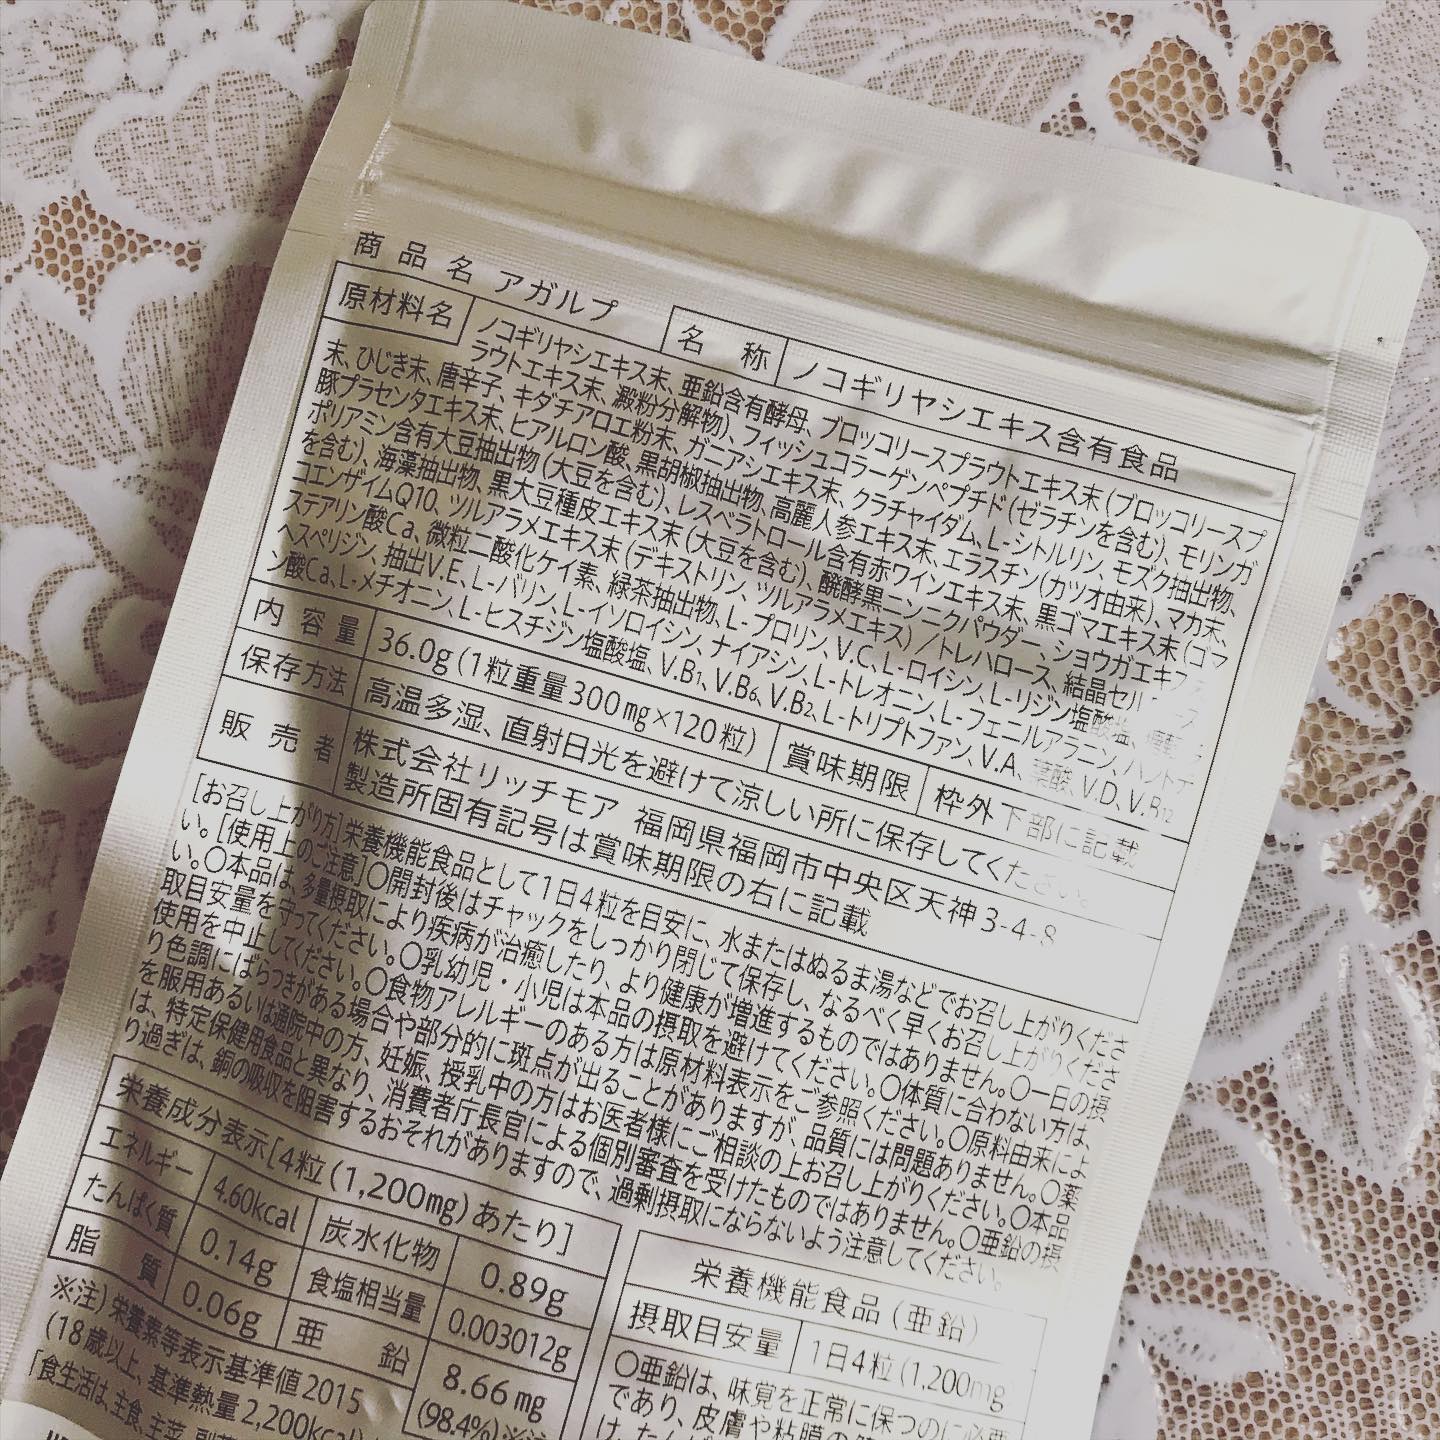 商品名 アガルプ
名称 ノコギリヤシエキス含有食品
原材料名 ノコギリヤシエキス末、亜鉛含有酵母、ブロッコリースプラウトエキス末(ブロッコリースプ
ラウトエキス末、澱粉分解物)、フィッシュコラーゲンペプチド(ゼラチンを含む)、モリンガ
末、ひじき末、唐辛子、キダチアロエ粉末、ガニアシエキス末、クラチャイダム、L-シトルリン、モズク抽出物、
豚プラセンタエキス末、ヒアルロン酸、黒胡椒抽出物、高麗人参エキス末、エラスチン(カツオ由来)、マカ末、
ポリアミン含有大豆抽出物(大豆を含む)、レスベラトロール含有赤ワインエキス末、黒ゴマエキス末(ゴマ
を含む)、海藻抽出物、黒大豆種皮エキス末(大豆を含む)、醗酵黒ニンニクパウダー、ショウガエキス
コエンザイムQ10、ツルアラメエキス末(デキストリン、ツルアラメエキス)/トレハロース、結晶セル
ステアリン酸Ca、微粒二酸化ケイ素、緑茶抽出物、L-プロリン、V.C、L-ロイシン、L-リジン塩酸塩、
ヘスペリジン、抽出V.E、L-バリン、L-イソロイシン、ナイアシン、L-トレオニン、L-フェニルアラニン、パントテ
ン酸Ca、L-メチオニン、L-ヒスチジン塩酸塩、V.B1、V.B6、V.B2、L-トリプトファン、V.A、葉酸、V.D、V.B12
内容量 36.0g(1粒重量300mg×120粒) 賞味期限 枠外下部に記載
保存方法 高温多湿、直射日光を避けて涼しい所に保存してください。
販売者 株式会社リッチモア 福岡県福岡市中央区天神3-4-8
製造所固有記号は賞味期限の右に記載
[お召し上がり方]栄養機能食品として1日4粒を目安に、水またはぬるま湯などでお召し上がりくださ
い。[使用上のご注意]〇開封後はチャックをしっかり閉じて保存し、なるべく早くお召し上がりくださ
い。〇本品は、多量摂取により疾病が治癒したり、より健康が増進するものではありません。〇一日の摂
取目安量を守ってください。〇乳幼児・小児は本品の摂取を避けてください。〇体質に合わない方は、
使用を中止してください。〇食物アレルギーのある方は原材料表示をご参照ください。〇原料由来によ
り色調にばらつきがある場合や部分的に斑点が出ることがありますが、品質には問題ありません。〇薬
を服用あるいは通院中の方、妊娠、授乳中の方はお医者様にご相談の上お召し上がりください。〇本品
は、特定保健用食品と異なり、消費者庁長官による個別審査を受けたものではありません。〇亜鉛の摂
り過ぎは、銅の吸収を阻害するおそれがありますので、過剰摂取にならないよう注意してください。
栄養成分表示[4粒(1,200mg)あたり]
エネルギー 4.60kcal 炭水化物 0.89g
たんぱく質 0.14g 食塩相当量 0.003012g
脂質 0.06g 亜鉛 8.66mg
(98.4%)※注
※注)栄養素等表示基準値2015
(18歳以上、基準熱量2,200kcal)
「食生活は、主食、主菜、副菜
栄養機能食品(亜鉛)
摂取目安量 1日4粒(1,200mg)
〇亜鉛は、味覚を正常に保つのに必要
であり、皮膚や粘膜の